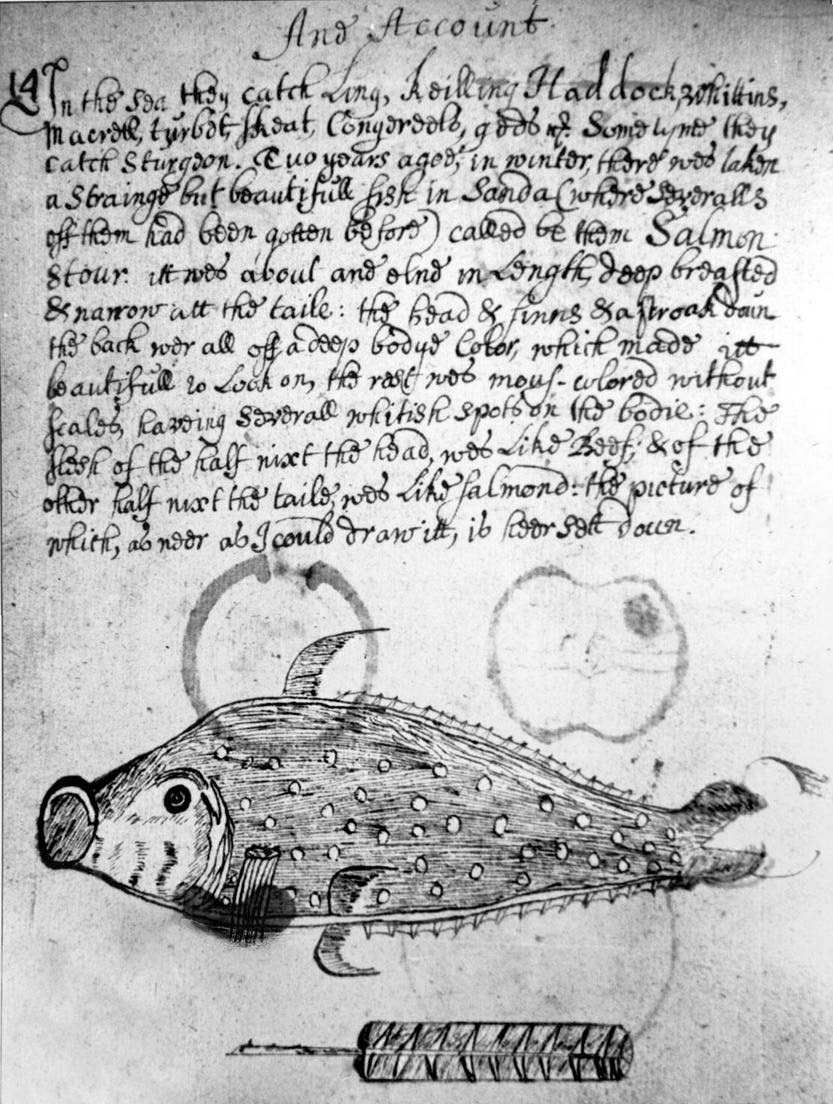 And Account
14 In the Sea they catch Ling, Keilling Haddock, whittins,
Macrell, turbot, skeat, Congereels, Some tyme they
catch Sturgeon. Tuo years agoe, in winter, there wes taken
a Strainge but beautifull fish in Sanda (where severalls
off them had been gotten before) called be them Salmon
Stour. itt wes about ane elne in Length, deep breasted
& narrow att the taile: the head & finns & a stroak doun
the back wer all off a deep Color, which made itt
beautifull to Look on, the rest wes mous-colored without
scales, haveing severall whitish spots on the bodie: The
flesh of the half nixt the head, wes Like Beef; & of the
other half nixt the taile, wes Like salmond: the picture of
which, as neer as I could draw itt, is heer sett doun.